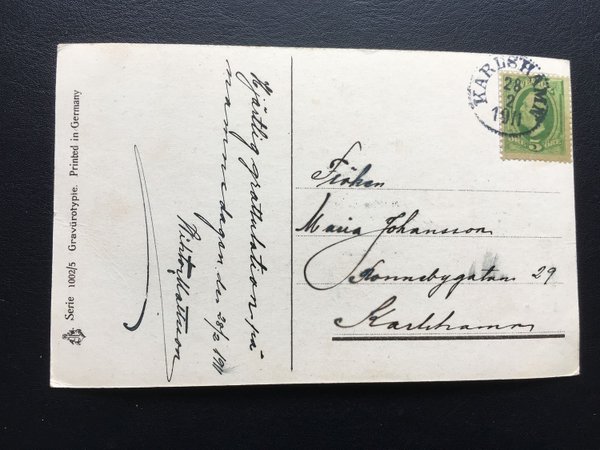 Hjärtlig grattulation på
namnsdagen den 28/2 1911
Mattsson
Serie 1002/5 Gravürotypie. Printed in Germany
KARLSHAMN
28
2
1911
5
Fröken
Maria Johansson
Ronnebygatan 29
Karlshamn